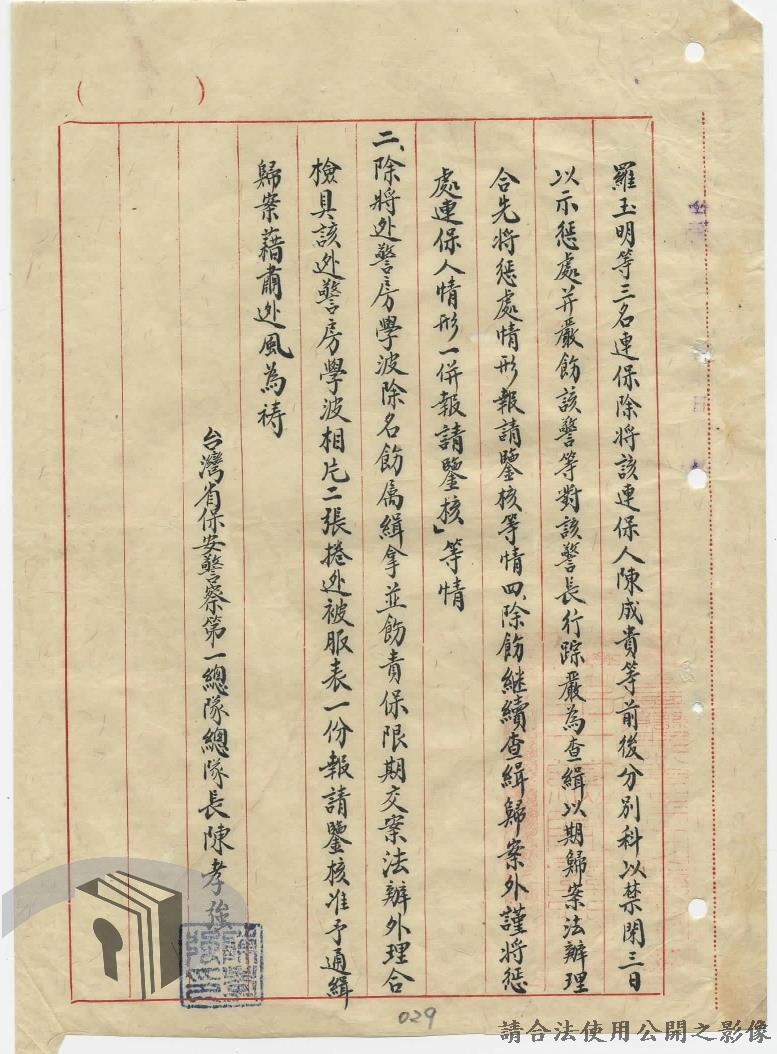 羅玉明等三名連保除將該連保人陳成貴等前後分別科以禁閉三日
以示惩處并嚴飭該警等對該警長行踪嚴為查緝以期歸案法辦理
合先將惩處情形報請鑒核等情四、除飭継續查緝歸案外謹將惩
處連保人情形一併報請鑒核」等情
二、除將逃警房學波除名飭属緝拿並飭責保限期交案法辦外理合
檢具該逃警房學波相片二張捲逃被服表一份報請鑒核准予通緝
歸案藉肅逃風為祷
台灣省保安警察第一總隊總隊長陳孝強
029
請合法使用公開之影像